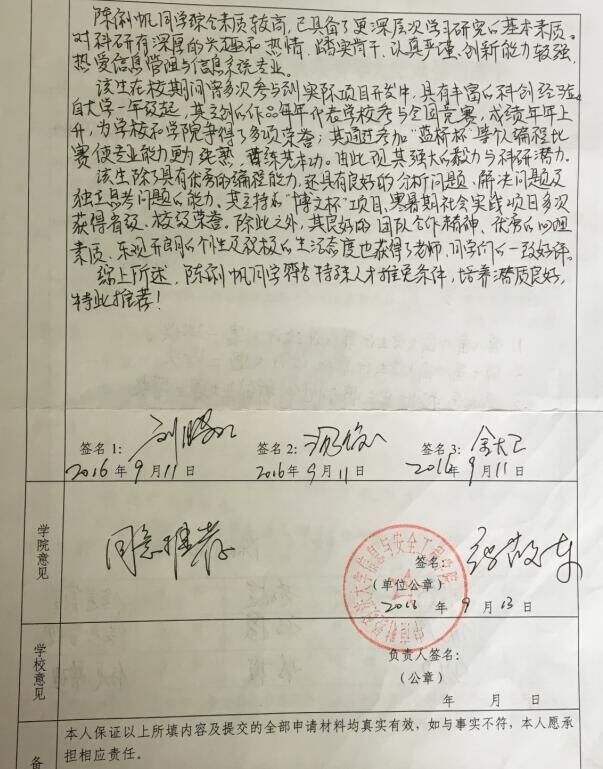 陈俐帆同学综合素质较高,已具备了更深层次学习研究的基本素质。
对科研有深厚的兴趣和热情、踏实肯干、认真严谨、创新能力较强,
热爱信息管理与信息系统专业。
该生在校期间曾多次参与到实际项目开发中,具有丰富的科创经验
自大学一年级起,其主创的作品年年代表学校参与全国竞赛,成绩年年上
升,为学校和学院争得了多项荣誉;其通过参加“蓝桥杯”等个人编程比
赛使专业能力更为纯熟,苦练基本功。由此现其强大的毅力与科研潜力。
该生除了具有优秀的编程能力,还具有良好的分析问题、解决问题及
独立思考问题的能力。其主持的“博文杯”项目,寒暑期社会实践项目多次
获得省级、校级荣誉。除此之外,其良好的团队合作精神、优秀的心理
素质、乐观开朗的个性及积极的生活态度也获得了老师、同学们的一致好评。
综上所述,陈俐帆同学符合特殊人才推免条件,培养潜质良好,
特此推荐!
签名1: 签名2: 签名3:
2016年9月11日 2016年9月11日 2016年9月11日
学院意见
同意推荐
签名:
(单位公章)
信息与安全工程学院
2016年9月13日
学校意见
负责人签名:
(公章)
年 月 日
备
本人保证以上所填内容及提交的全部申请材料均真实有效,如与事实不符,本人愿承
担相应责任。